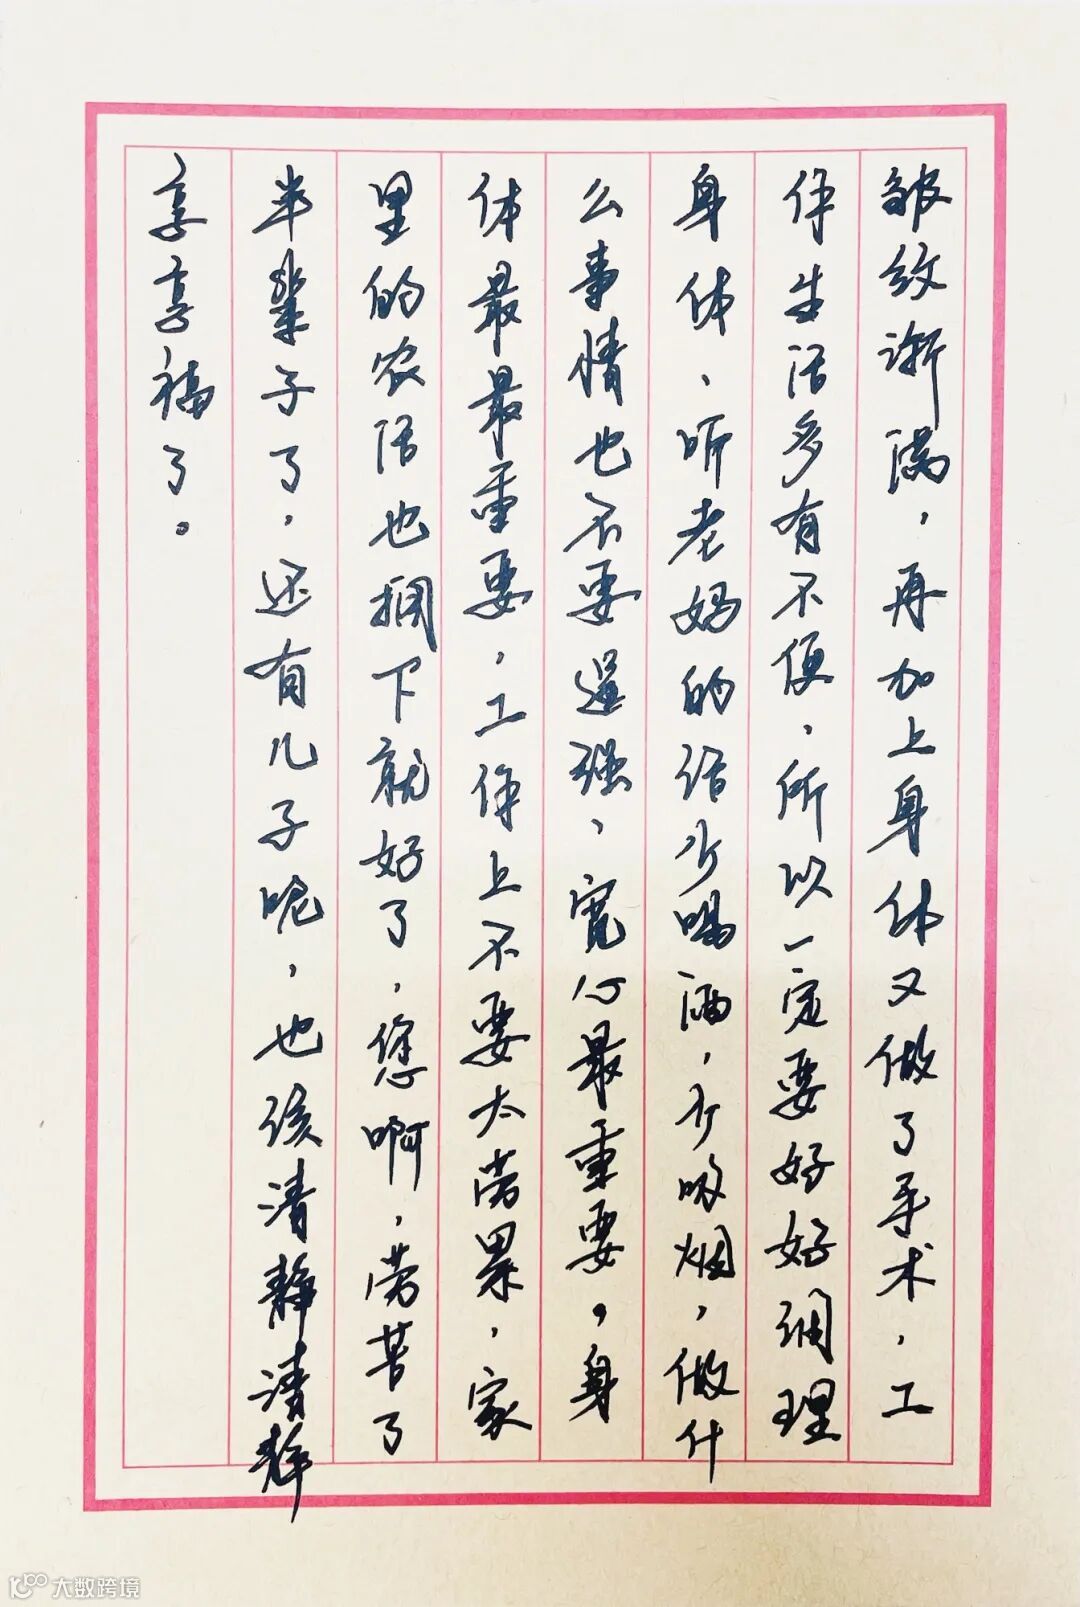 皱纹渐满，再加上身体又做了手术，工
作生活多有不便，所以一定要好好调理
身体、听老妈的话少喝酒，少吸烟，做什
么事情也不要逞强，宽心最重要。身
体最最重要，工作上不要太劳累，家
里的农活也搁下就好了，您啊，劳苦了
半辈子了，还有儿子呢，也该清静清静
享享福了。
大数跨境